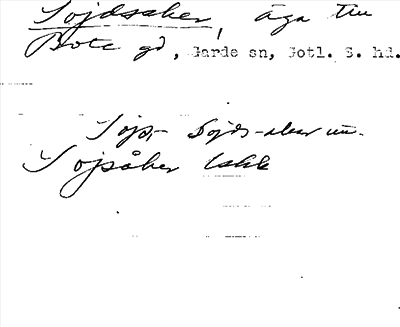 Sojdsaker, äga till
Bote gd, Garde sn, Gotl. S. hd.
Sojs- Sojds-aker un.
Sojsåker lakk